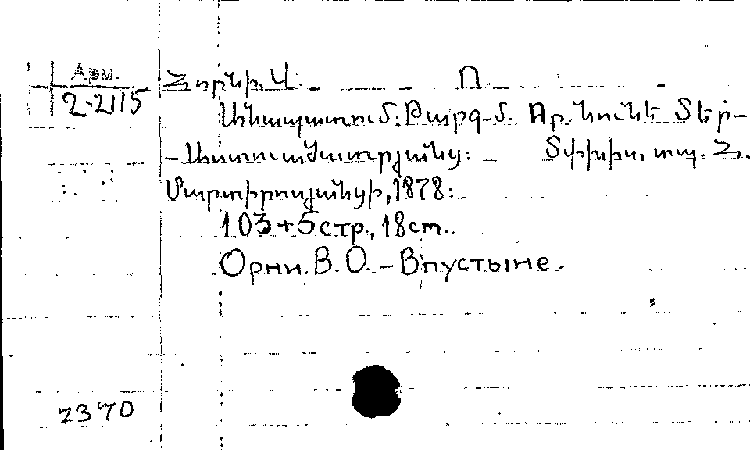 Арм.
2-2115
Հորնի. Վ. Ո
Անապատում: Թարգ-մ. Օր. Նունե Տեր-
-Աստուածատրյանց: - Տփխիս, տպ. Հ.
Մարտիրոսյանցի, 1878:
103+5 стр., 18 cm.
Орни. В. О. - В пустыне.
7370